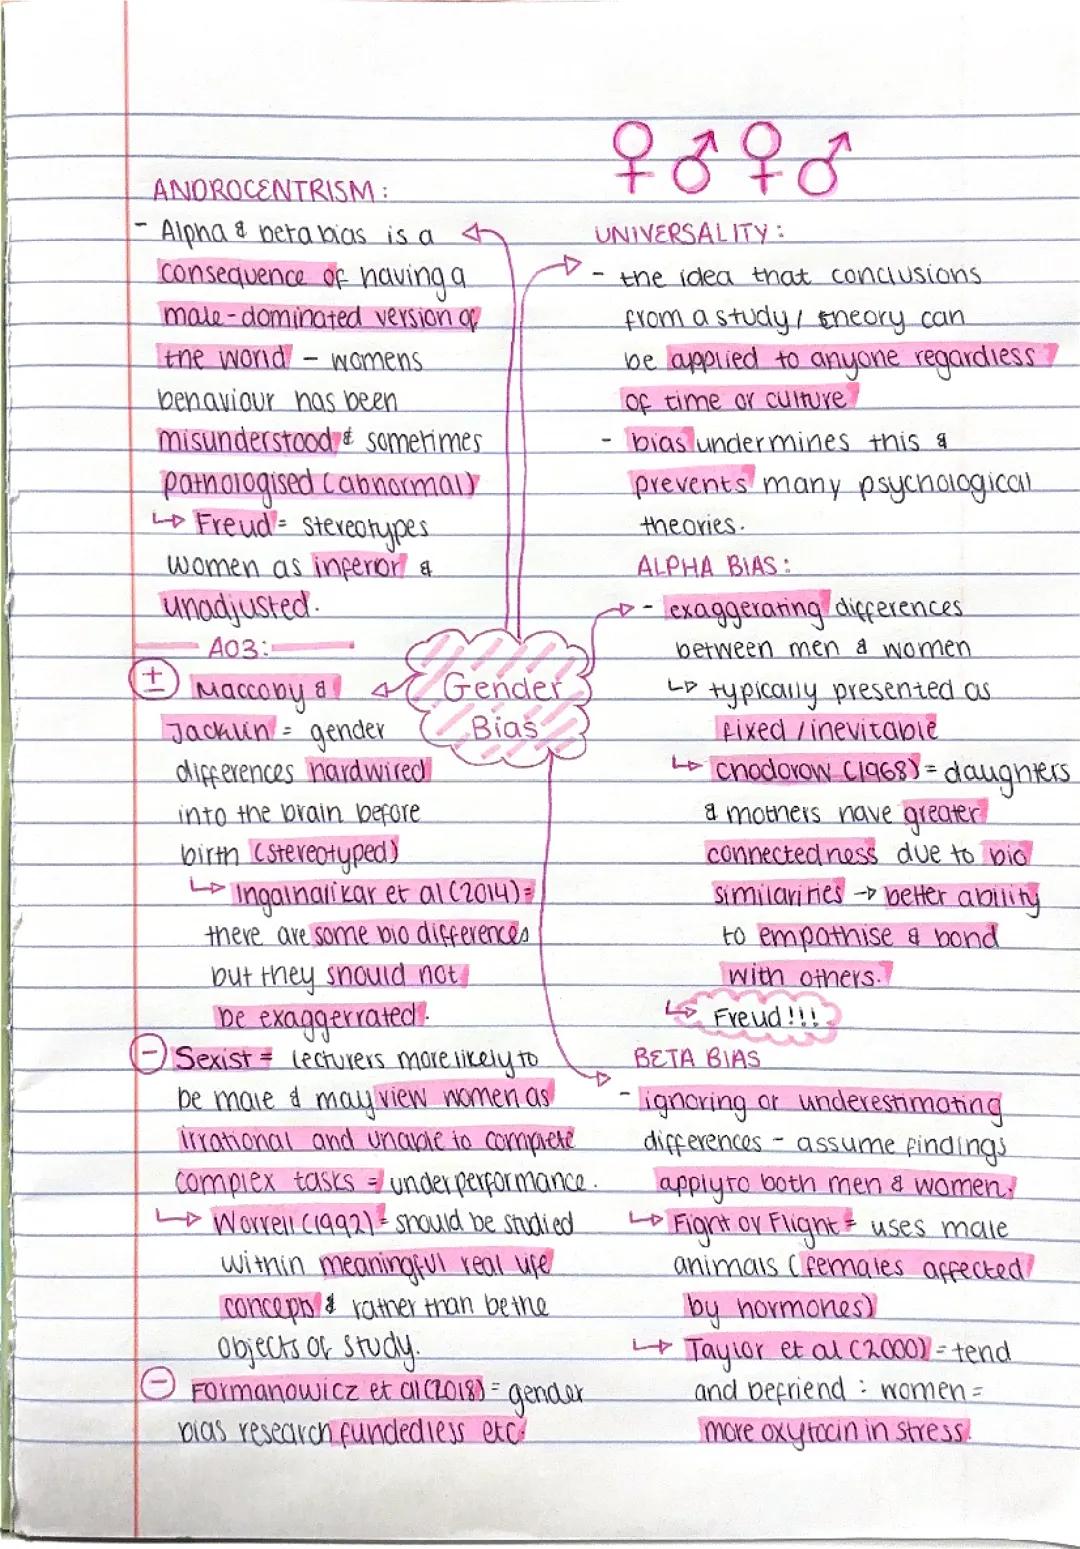 ANDROCENTRISM:
- Alpha & beta bias is a
consequence of having a
male-dominated version of
the world - womens
behaviour has been
misunderstood & sometimes
pathologised (abnormal)
↳ Freud = stereotypes
women as inferior &
unadjusted.
A03:
± Maccoby &
Jacklin = gender
differences hardwired
into the brain before
birth (stereotyped)
↳ Ingalhalikar et al (2014) =
there are some bio differences
but they should not
be exaggerrated.
- Sexist = lecturers more likely to
be male & may view women as
irrational and unable to complete
complex tasks = underperformance.
↳ Worrell (1992) = should be studied
within meaningful real life
concepts & rather than be the
objects of study.
- Formanowicz et al (2018) = gender
bias research funded less etc.
Gender
Bias
♀ ♂ ♀ ♂
UNIVERSALITY:
- the idea that conclusions
from a study / theory can
be applied to anyone regardless
of time or culture
- bias undermines this &
prevents many psychological
theories.
ALPHA BIAS:
- exaggerating differences
between men & women
↳ typically presented as
fixed / inevitable
↳ Chodorow (1968) = daughters
& mothers have greater
connectedness due to bio
similarities → better ability
to empathise & bond
with others.
↳ Freud!!!
BETA BIAS
- ignoring or underestimating
differences - assume findings
apply to both men & women.
↳ Fight or Flight = uses male
animals (females affected
by hormones)
↳ Taylor et al (2000) = tend
and befriend : women =
more oxytocin in stress.